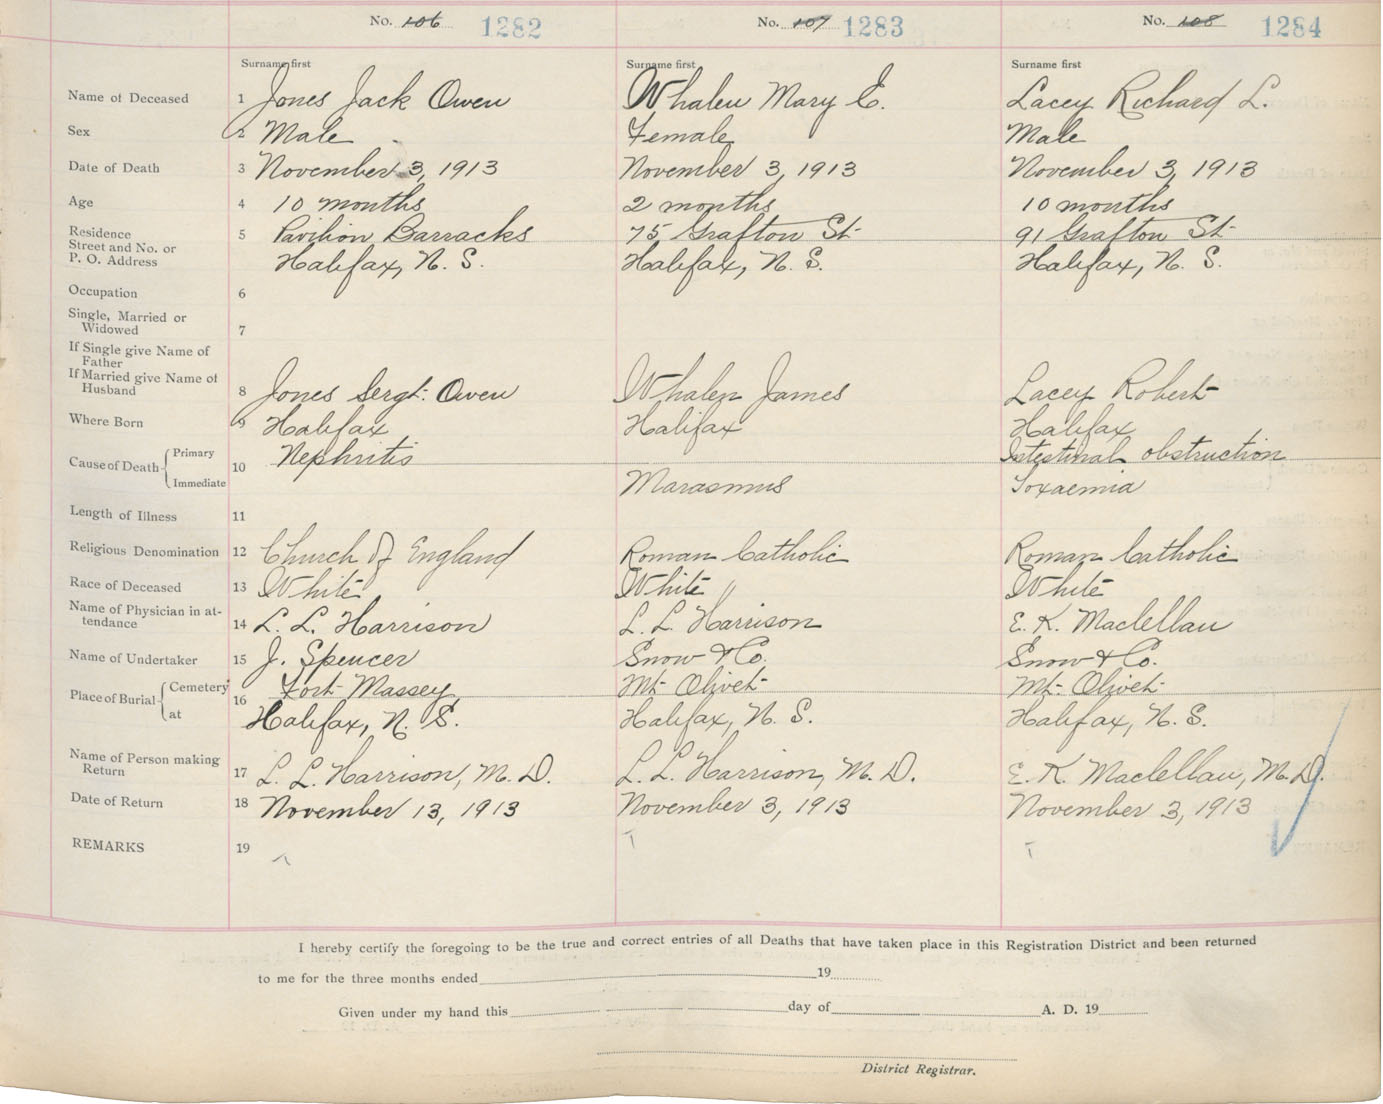 No. 106 1282 No. 107 1283 No. 108 1284
Surname first Surname first Surname first
Name of Deceased 1 Jones Jack Owen Whalen Mary E. Lacey Richard L.
Sex 2 Male Female Male
Date of Death 3 November 3, 1913 November 3, 1913 November 3, 1913
Age 4 10 months 2 months 10 months
Residence
Street and No. or 5 Pavilion Barracks 75 Grafton St. 91 Grafton St.
P. O. Address Halifax, N. S. Halifax, N. S. Halifax, N. S.
Occupation 6
Single, Married or
Widowed 7
If Single give Name of
Father
If Married give Name of
Husband 8 Jones Sergt. Owen Whalen James Lacey Robert
Where Born 9 Halifax Halifax Halifax
Cause of Death Primary 10 Nephritis Intestinal obstruction
Immediate Marasmus Toxaemia
Length of Illness 11
Religious Denomination 12 Church of England Roman Catholic Roman Catholic
Race of Deceased 13 White White " White
Name of Physician in at-
tendance 14 L. L. Harrison L. L. Harrison E. K. Maclellan
Name of Undertaker 15 J. Spencer Snow & Co. Snow & Co.
Place of Burial Cemetery 16 Fort Massey Mt. Olivet Mt. Olivet
at Halifax, N. S. Halifax, N. S. Halifax, N. S.
Name of Person making
Return 17 L. L. Harrison, M. D. L. L. Harrison, M. D. E. K. Maclellan, M. D.
Date of Return 18 November 13, 1913 November 3, 1913 November 3, 1913
REMARKS 19
I hereby certify the foregoing to be the true and correct entries of all Deaths that have taken place in this Registration District and been returned
to me for the three months ended 19
Given under my hand this day of A. D. 19
District Registrar.